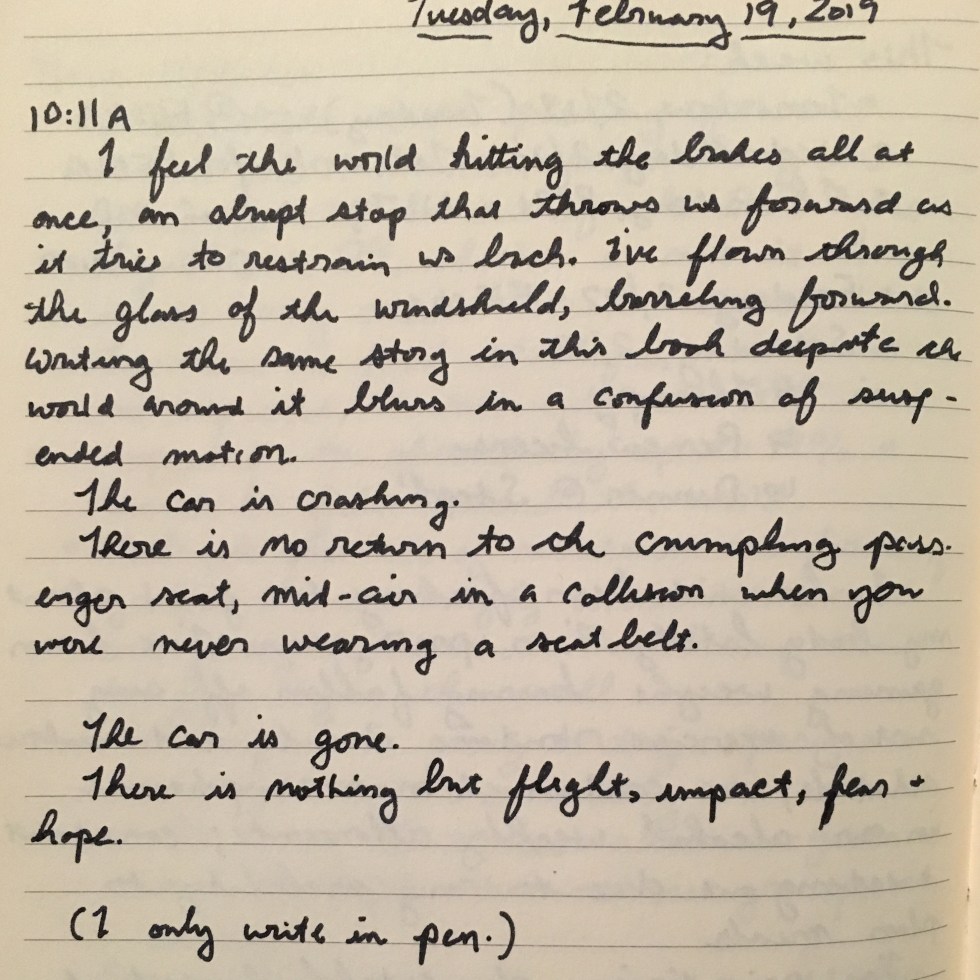 Tuesday, February 19, 2019
10:11 A
I feel the world hitting the brakes all at
once, an abrupt stop that throws us forward as
it tries to restrain us back. I've flown through
the glass of the windshield, barreling forward.
Writing the same story in this book despite the
world around it blurs in a confusion of susp-
ended motion.
The car is crashing.
There is no return to the crumpling pass-
enger seat, mid-air in a collision when you
were never wearing a seatbelt.
The car is gone.
There is nothing but flight, impact, fear +
hope.
(I only write in pen.)